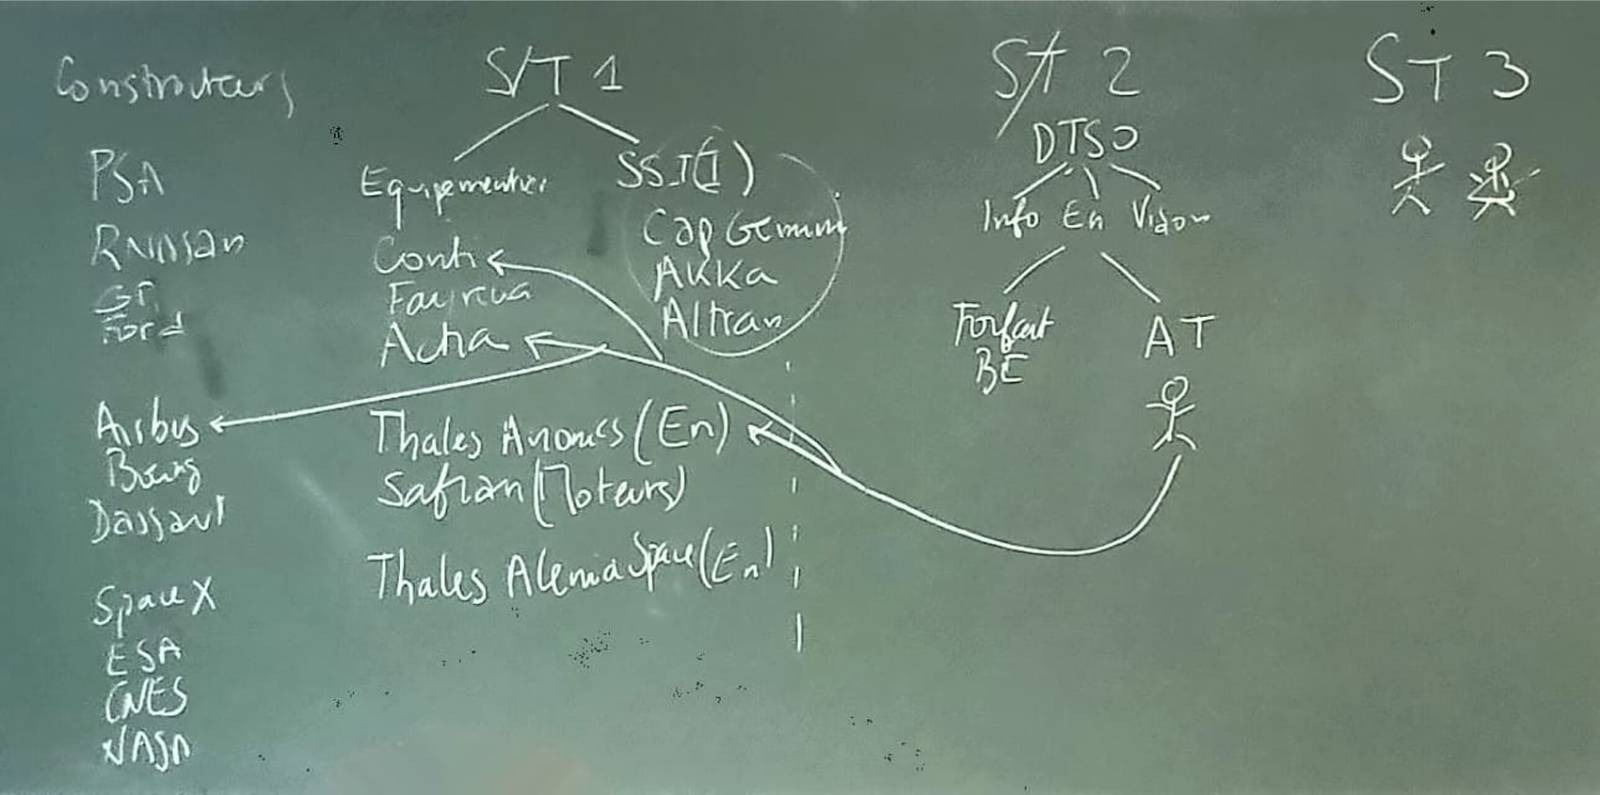 Constructeurs
PSA
RNissan
GM
Ford
Airbus
Boeing
Dassault
SpaceX
ESA
CNES
NASA
S/T 1
Equipementier
Conti
Faurecia
Actia
Thales Avionics (En)
Safran (Moteurs)
Thales Alenia Space (En)
SSI(I)
Cap Gemini
AKKA
Altran
S/T 2
DTSO
Info En Vision
Forfait
BE
AT
ST 3